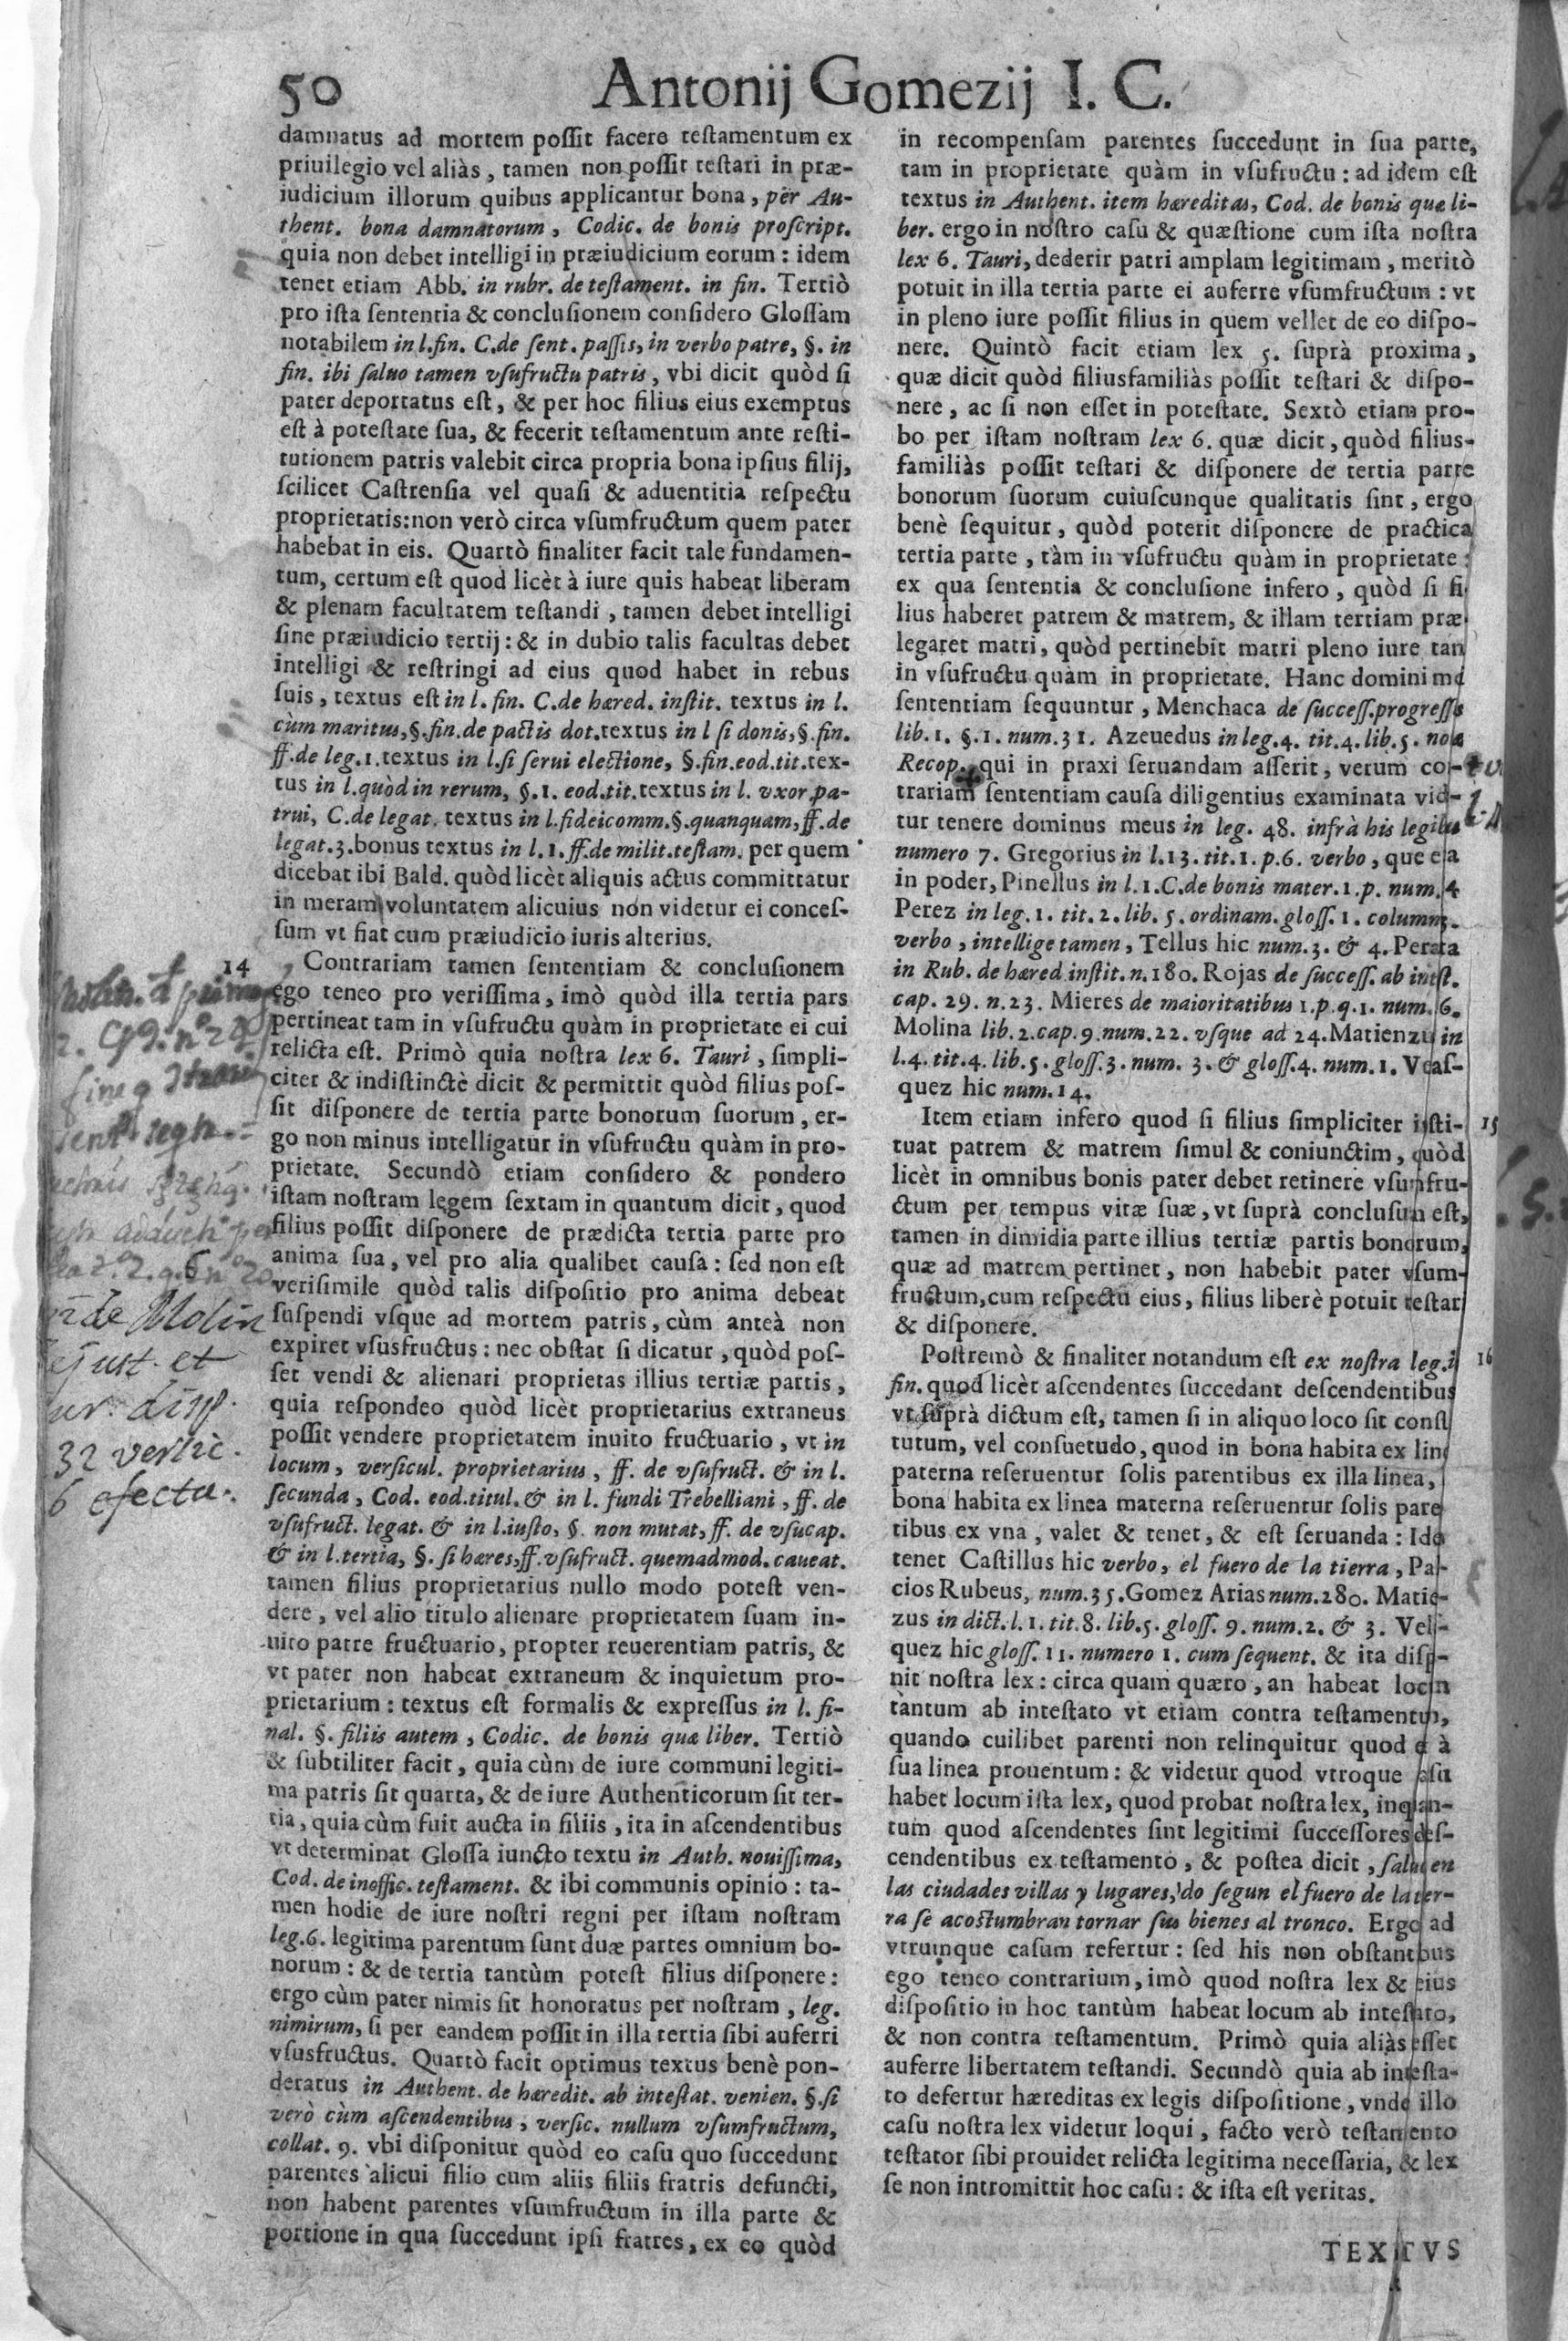 50 Antonij Gomezij I. C.
damnatus ad mortem possit facere testamentum ex
priuilegio vel aliàs, tamen non possit testari in præ-
iudicium illorum quibus applicantur bona, per Au-
thent. bona damnatorum, Codic. de bonis proscript.
quia non debet intelligi in præiudicium eorum: idem
tenet etiam Abb. in rubr. de testament. in fin. Tertiò
pro ista sententia & conclusionem considero Glossam
notabilem in l.fin. C.de sent. passis, in verbo patre, §. in
fin. ibi saluo tamen vsufructu patris, vbi dicit quòd si
pater deportatus est, & per hoc filius eius exemptus
est à potestate sua, & fecerit testamentum ante resti-
tutionem patris valebit circa propria bona ipsius filij,
scilicet Castrensia vel quasi & aduentitia respectu
proprietatis: non verò circa vsumfructum quem pater
habebat in eis. Quartò finaliter facit tale fundamen-
tum, certum est quod licèt à iure quis habeat liberam
& plenam facultatem testandi, tamen debet intelligi
sine præiudicio tertij: & in dubio talis facultas debet
intelligi & restringi ad eius quod habet in rebus
suis, textus est in l. fin. C.de hæred. instit. textus in l.
cùm maritus, §.fin. de pactis dot. textus in l si donis, §. fin.
ff.de leg.1. textus in l.si serui electione, §.fin.eod.tit.tex-
tus in l.quòd in rerum, §.1. eod.tit.textus in l. vxor pa-
trui, C.de legat. textus in l.fideicomm.§.quanquam, ff.de
legat.3.bonus textus in l.1.ff.de milit.testam. per quem
dicebat ibi Bald. quòd licèt aliquis actus committatur
in meram voluntatem alicuius non videtur ei conces-
sum vt fiat cum præiudicio iuris alterius.
14 Contrariam tamen sententiam & conclusionem
ego teneo pro verissima, imò quòd illa tertia pars
pertineat tam in vsufructu quàm in proprietate ei cui
relicta est. Primò quia nostra lex 6. Tauri, simpli-
citer & indistinctè dicit & permittit quòd filius pos-
sit disponere de tertia parte bonorum suorum, er-
go non minus intelligatur in vsufructu quàm in pro-
prietate. Secundò etiam considero & pondero
istam nostram legem sextam in quantum dicit, quod
filius possit disponere de prædicta tertia parte pro
anima sua, vel pro alia qualibet causa: sed non est
verisimile quòd talis dispositio pro anima debeat
suspendi vsque ad mortem patris, cùm anteà non
expiret vsusfructus: nec obstat si dicatur, quòd pos-
set vendi & alienari proprietas illius tertiæ partis,
quia respondeo quòd licèt proprietarius extraneus
possit vendere proprietatem inuito fructuario, vt in
locum, versicul. proprietarius, ff. de vsufruct. & in l.
secunda, Cod. eod.titul. & in l. fundi Trebelliani, ff. de
vsufruct. legat. & in l.iusto, §. non mutat, ff. de vsucap.
& in l.tertia, §. si hæres, ff.vsufruct. quemadmod. caueat.
tamen filius proprietarius nullo modo potest ven-
dere, vel alio titulo alienare proprietatem suam in-
uito patre fructuario, propter reuerentiam patris, &
vt pater non habeat extraneum & inquietum pro-
prietarium: textus est formalis & expressus in l. fi-
nal. §. filiis autem, Codic. de bonis quæ liber. Tertiò
& subtiliter facit, quia cùm de iure communi legiti-
ma patris sit quarta, & de iure Authenticorum sit ter-
tia, quia cùm fuit aucta in filiis, ita in ascendentibus
vt determinat Glossa iuncto textu in Auth. nouissima,
Cod. de inoffic. testament. & ibi communis opinio: ta-
men hodie de iure nostri regni per istam nostram
leg.6. legitima parentum sunt duæ partes omnium bo-
norum: & de tertia tantùm potest filius disponere:
ergo cùm pater nimis sit honoratus per nostram, leg.
nimirum, si per eandem possit in illa tertia sibi auferri
vsusfructus. Quartò facit optimus textus benè pon-
deratus in Authent. de hæredit. ab intestat. venien. §.si
verò cùm ascendentibus, versic. nullum vsumfructum,
collat. 9. vbi disponitur quòd eo casu quo succedunt
parentes alicui filio cum aliis filiis fratris defuncti,
non habent parentes vsumfructum in illa parte &
portione in qua succedunt ipsi fratres, ex eo quòd
in recompensam parentes succedunt in sua parte,
tam in proprietate quàm in vsufructu: ad idem est
textus in Authent. item hæreditas, Cod. de bonis quæ li-
ber. ergo in nostro casu & quæstione cum ista nostra
lex 6. Tauri, dederit patri amplam legitimam, meritò
potuit in illa tertia parte ei auferre vsumfructum: vt
in pleno iure possit filius in quem vellet de eo dispo-
nere. Quintò facit etiam lex 5. suprà proxima,
quæ dicit quòd filiusfamiliàs possit testari & dispo-
nere, ac si non esset in potestate. Sextò etiam pro-
bo per istam nostram lex 6. quæ dicit, quòd filius-
familiàs possit testari & disponere de tertia parte
bonorum suorum cuiuscunque qualitatis sint, ergo
benè sequitur, quòd poterit disponere de practica
tertia parte, tàm in vsufructu quàm in proprietate:
ex qua sententia & conclusione infero, quòd si fi-
lius haberet patrem & matrem, & illam tertiam præ-
legaret matri, quòd pertinebit matri pleno iure tan
in vsufructu quàm in proprietate. Hanc domini me
sententiam sequuntur, Menchaca de success.progressu
lib.1. §.1. num.31. Azeuedus in leg.4. tit.4. lib.5. nouæ
Recop. qui in praxi seruandam asserit, verum co-
trariam sententiam causa diligentius examinata vid-
tur tenere dominus meus in leg. 48. infrà his legibus
numero 7. Gregorius in l.13. tit.1. p.6. verbo, que era
in poder, Pinellus in l.1.C.de bonis mater.1.p. num.4
Perez in leg.1. tit.2. lib.5. ordinam. gloss.1. column.
verbo, intellige tamen, Tellus hic num.3. & 4. Perata
in Rub. de hæred instit.n.180. Rojas de success. ab intest.
cap. 29. n.23. Mieres de maioritatibus 1.p.q.1. num.6.
Molina lib.2.cap.9.num.22. vsque ad 24.Matienzu in
l.4. tit.4. lib.5. gloss.3. num. 3. & gloss.4. num.1. Veas-
quez hic num.14.
Item etiam infero quod si filius simpliciter insti- 15
tuat patrem & matrem simul & coniunctim, quòd
licèt in omnibus bonis pater debet retinere vsumfru-
ctum per tempus vitæ suæ, vt suprà conclusum est,
tamen in dimidia parte illius tertiæ partis bonorum,
quæ ad matrem pertinet, non habebit pater vsum-
fructum, cum respectu eius, filius liberè potuit testari
& disponere.
Postremò & finaliter notandum est ex nostra leg. in 16
fin. quod licèt ascendentes succedant descendentibus
vt suprà dictum est, tamen si in aliquo loco sit consti
tutum, vel consuetudo, quod in bona habita ex line
paterna reseruentur solis parentibus ex illa linea,
bona habita ex linea materna reseruentur solis pare
tibus ex vna, valet & tenet, & est seruanda: Ide
tenet Castillus hic verbo, el fuero de la tierra, Pa-
cios Rubeus, num.35.Gomez Arias num.280. Matie-
zus in dict.l.1.tit.8. lib.5. gloss. 9. num.2. & 3. Vel-
quez hic gloss. 11. numero 1. cum sequent. & ita disp-
nit nostra lex: circa quam quæro, an habeat locum
tàntum ab intestato vt etiam contra testamentum,
quando cuilibet parenti non relinquitur quod e à
sua linea prouentum: & videtur quod vtroque casu
habet locum ista lex, quod probat nostra lex, inquan-
tum quod ascendentes sint legitimi successores des-
cendentibus ex testamento, & postea dicit, saluo en
las ciudades villas y lugares, do segun el fuero de la ter-
ra se acostumbran tornar sus bienes al tronco. Ergo ad
vtrumque casum refertur: sed his non obstantibus
ego teneo contrarium, imò quod nostra lex & eius
dispositio in hoc tantùm habeat locum ab intestato,
& non contra testamentum. Primò quia aliàs esset
auferre libertatem testandi. Secundò quia ab intesta-
to defertur hæreditas ex legis dispositione, vnde illo
casu nostra lex videtur loqui, facto verò testamento
testator sibi prouidet relicta legitima necessaria, & lex
se non intromittit hoc casu: & ista est veritas.
TEXTVS
Molin
just. et
disp.
32
6 efectu.